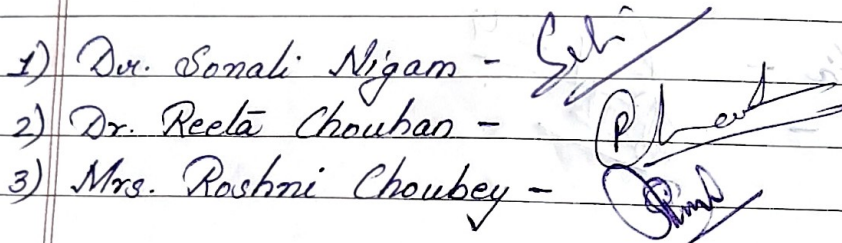 1) Dr. Sonali Nigam -
2) Dr. Reeta Chouhan -
3) Mrs. Roshni Choubey -